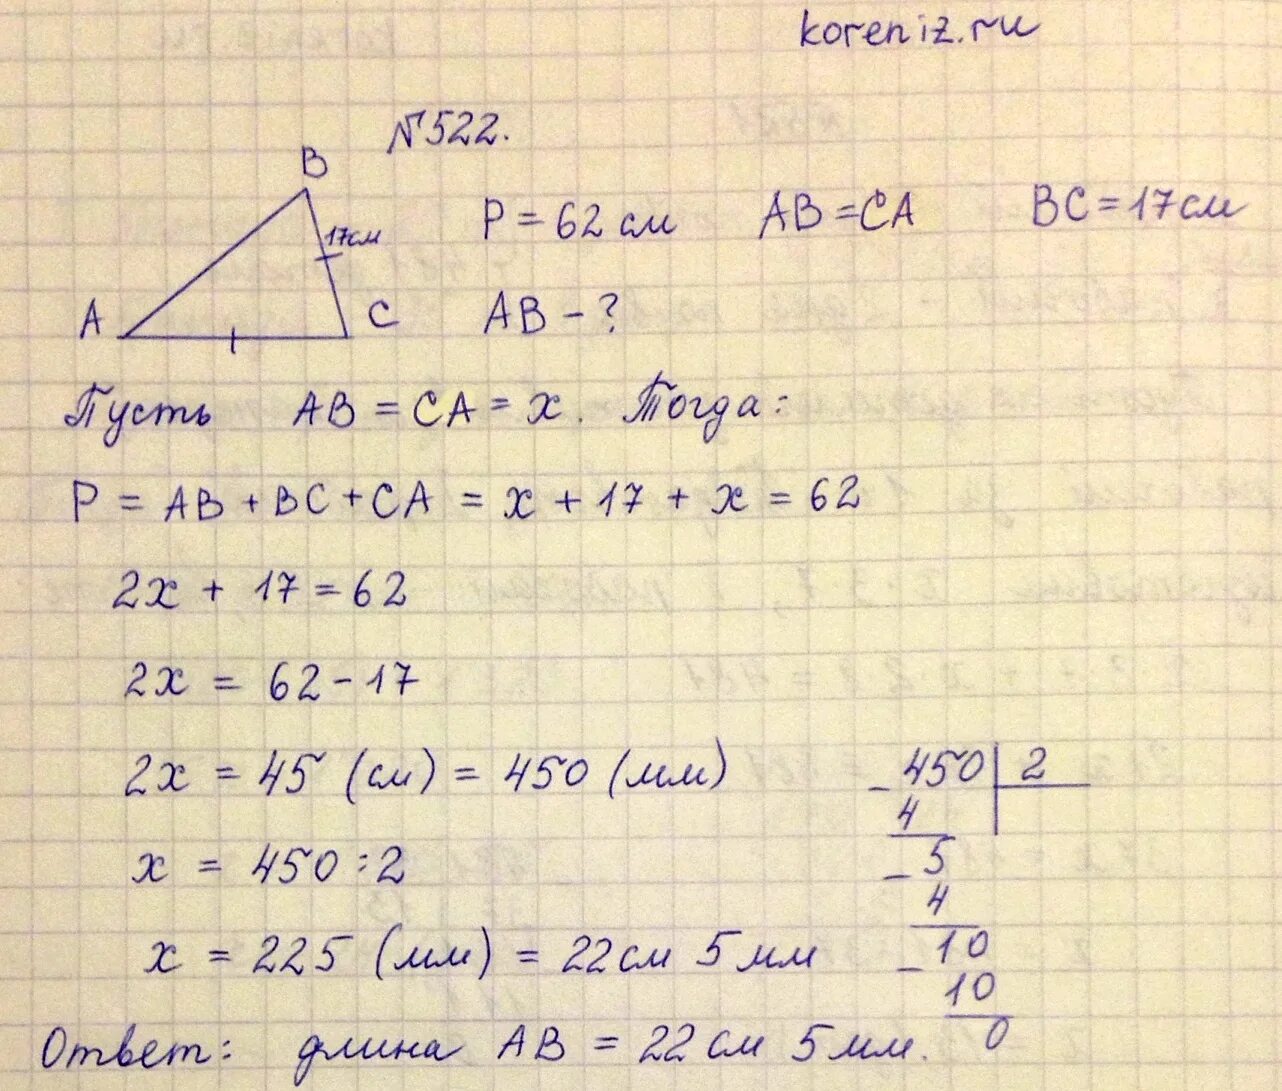 koreniz.ru
№522.
B
17см
A
C
P = 62 см AB = CA BC = 17 см
AB - ?
Пусть AB = CA = x. Тогда:
P = AB + BC + CA = x + 17 + x = 62
2x + 17 = 62
2x = 62 - 17
2x = 45 (см) = 450 (мм)
x = 450 : 2
x = 225 (мм) = 22 см 5 мм
- 450 | 2
4
- 5
4
- 10
10
0
Ответ: длина AB = 22 см 5 мм.